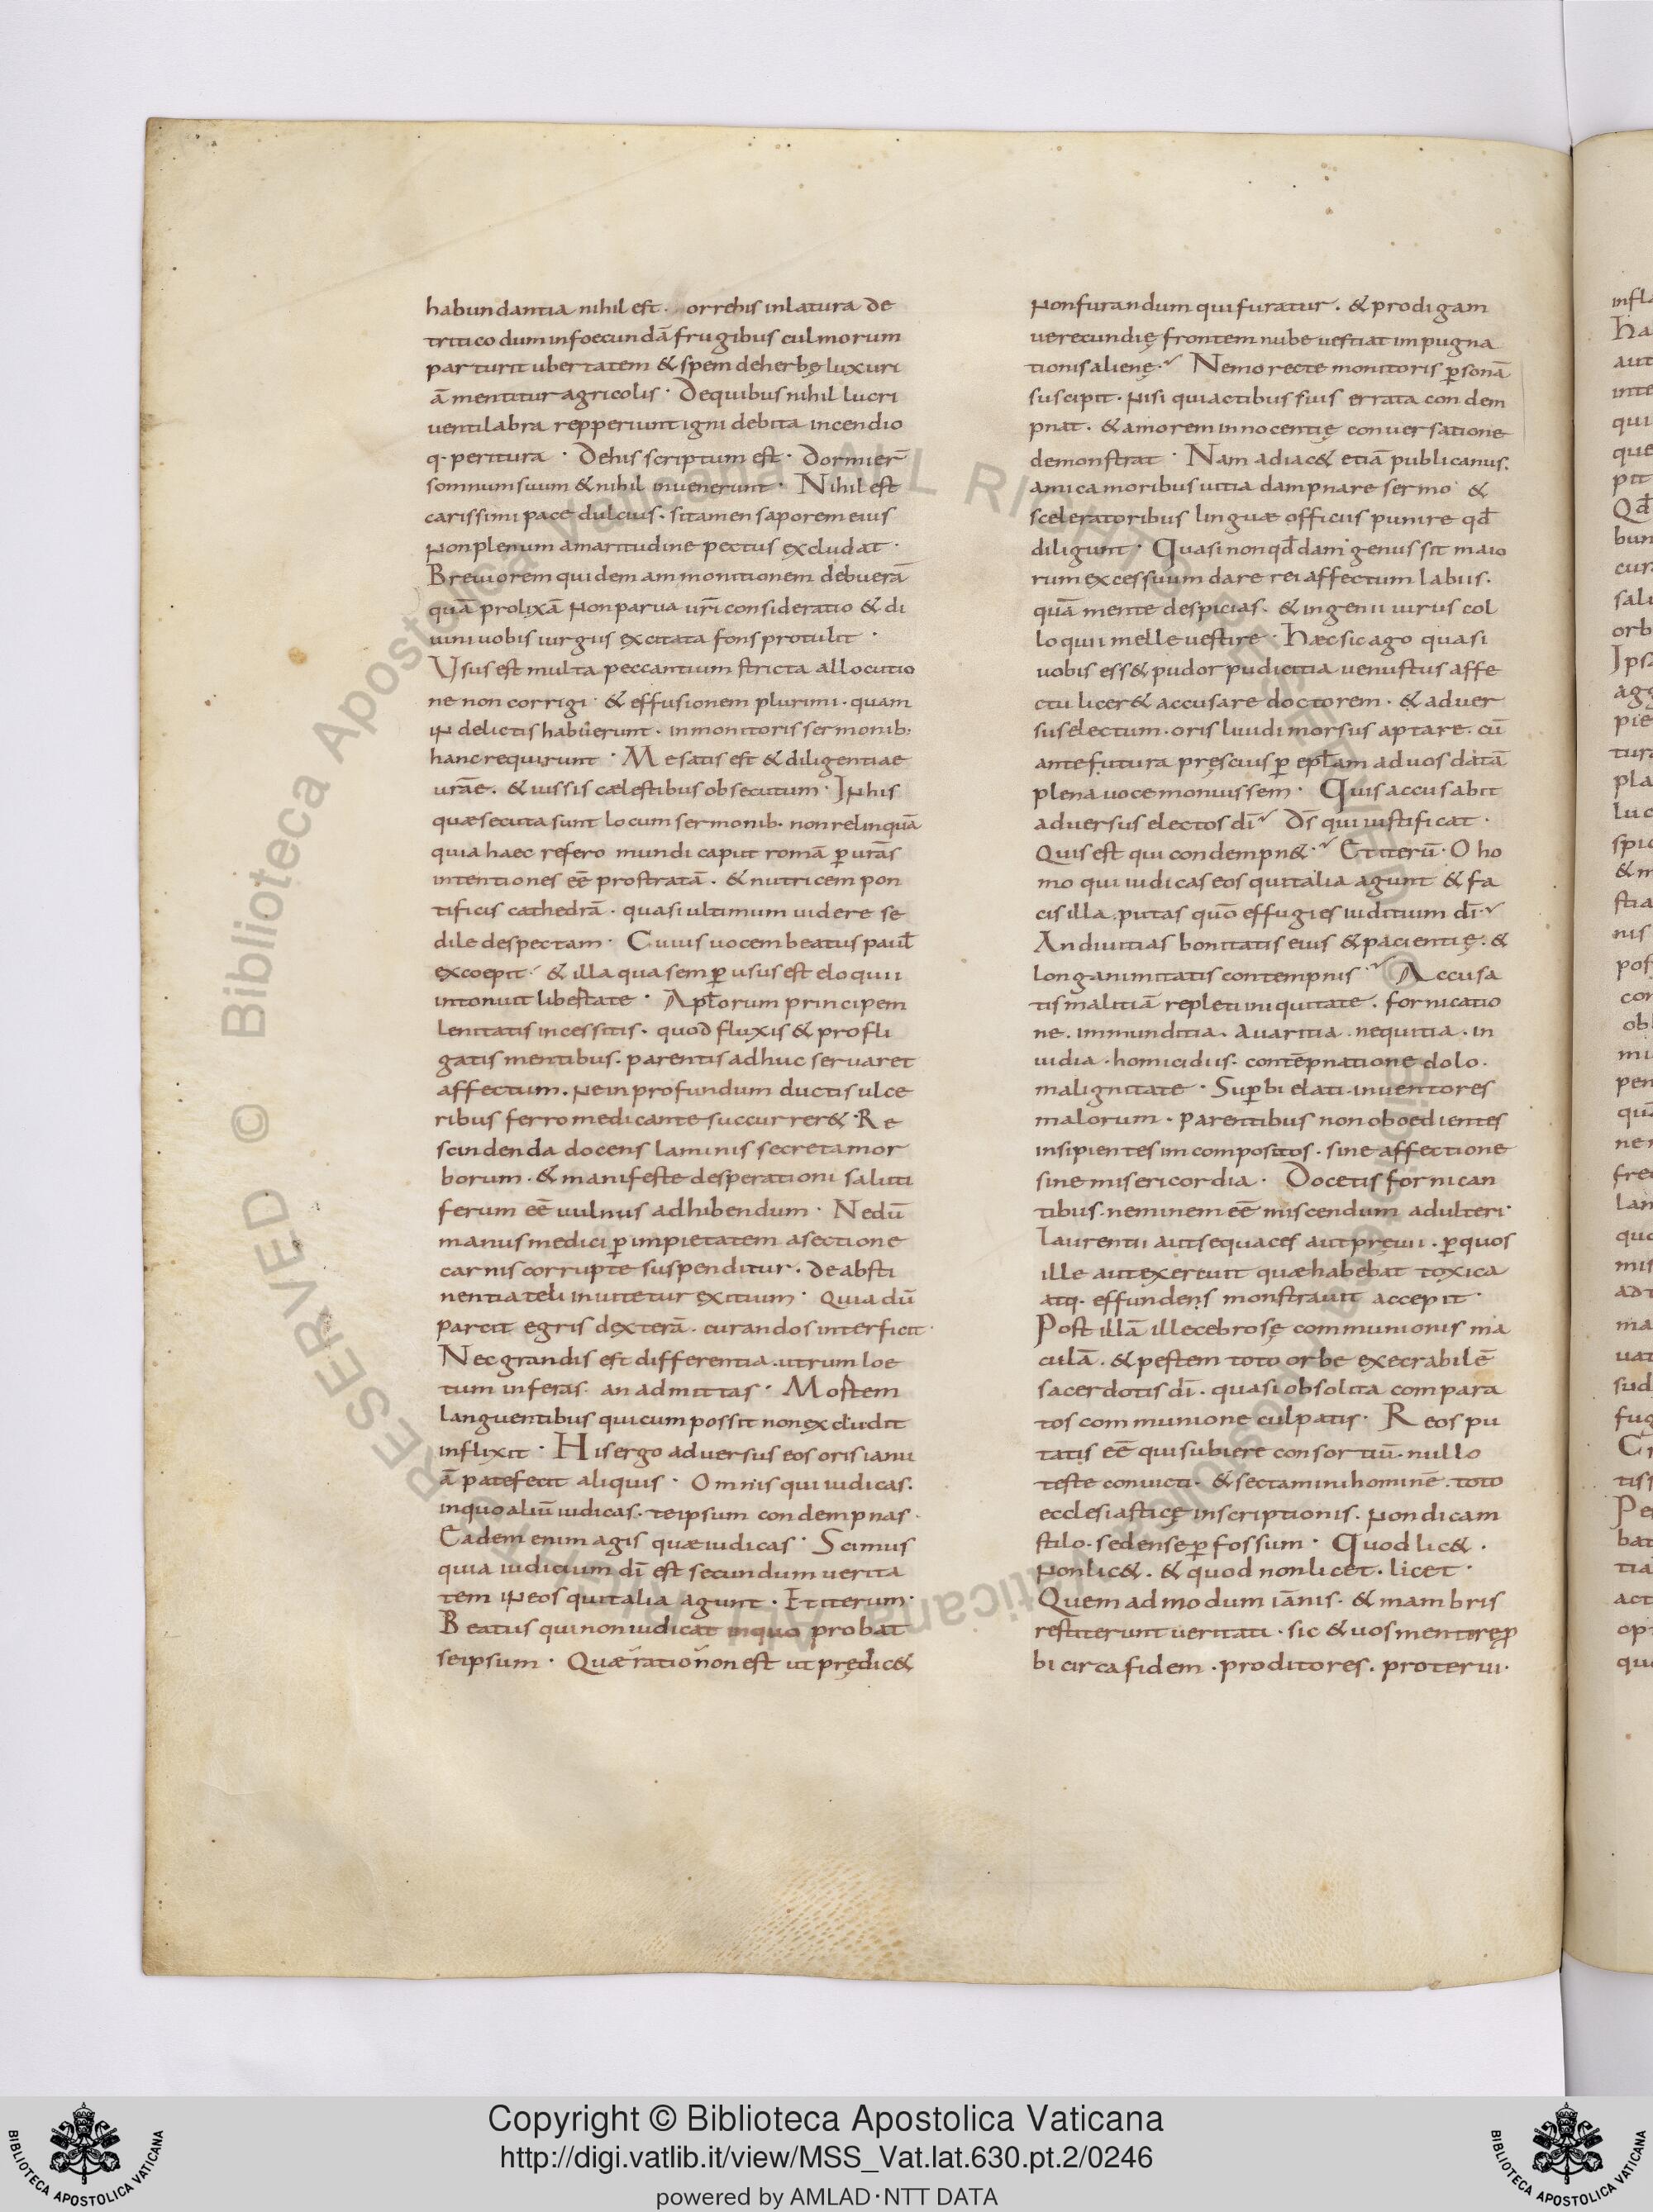 habundantia nihil est. orrehis inlatura de
tritico dum infoecundā frugibus culmorum
parturit ubertatem & spem deherbę luxuri
ā mentitur agricolis · Dequibus nihil lucri
uentilabra repperiunt igni debita incendio
q· peritura · Dehis scriptum est · Dormier̄
somnum suum & nihil inuenerunt · Nihil est
carissimi pace dulcius · sitamen saporem eius
Non plenum amaritudine pectus excludat ·
Breuiorem quidem ammonitionem debuerā
quā prolixā Non parua ur̄i consideratio & di
uini uobis iurgiis excitata fons protulit ·
Usus est multa peccantium stricta allocutio
ne non corrigi · & effusionem plurimi · quam
iN delictis habuerunt · inmonitoris sermonib·
hanc requirunt · Me satis est & diligentiae
urāe. & iussis cælestibus obsecutum · JN his
quæ secuta sunt locum sermonib· non relinquā
quia haec refero mundi caput romā p̄ urās
intentiones eē prostratā. & nutricem pon
tificis cathedrā · quasi ultimum uidere se
dile despectam · Cuius uocem beatus paul̄
excoepit · & illa qua semp̄ usus est eloquii
intonuit libestate · Apl̄orum principem
lenitatis incessitis · quod fluxis & profli
gatis mentibus. parentis adhuc seruaret
affectum. Ne in profundum ductis ulce
ribus ferro medicante succurrer& · Re
scindenda docens laminis secreta mor
borum · & manifeste desperationi saluti
ferum eē uulnus adhibendum · Nedū
manus medici p̄ impietatem asectione
carnis corrupte suspenditur. de absti
nentia teli inuitetur exitium · Quia dū
parcit egris dexterā. curandos interficit ·
Nec grandis est differentia. utrum loe
tum inferas an admittas · Mostem
languentibus qui cum possit non excludit
inflixit · His ergo aduersus eos oris ianu
ā patefecit aliquis · Omnis qui iudicas.
inquo aliū iudicas. te ipsum condempnas ·
Eadem enim agis quæ iudicas · Scimus
quia iudicium dī est secundum uerita
tem iN eos qui talia agunt · Et iterum ·
Beatus qui non iudicat inquo probat
seipsum · Quæ ratio non est ut prędic&
Non furandum qui furatur. & prodigam
uerecundię frontem nube uestiat impugna
tionis alienę · Nemo recte monitoris p̄sonā
suscipit · Nisi qui actibus suis errata condem
pnat. & amorem innocentię conuersatione
demonstrat · Nam adiac& etiā publicanus.
amica moribus uitia dampnare sermo &
sceleratoribus linguæ officiis punire qd̄
diligunt · Quasi non qd̄dam genus sit maio
rum excessuum dare rei affectum labiis.
quā mente despicias. & ingenii uirus col
loquii melle uestire · Hæc sic ago quasi
uobis ess& pudor pudicitia uenustus affe
ctu licer& accusare doctorem · & aduer
sus electum. oris liuidi morsus aptare. cū
ante futura pręscius p̄ epl̄am ad uos datā
plena uoce monuissem · Quis accusabit
aduersus electos dī Ds̄ qui iustificat ·
Quis est qui condempn& · Et iterū · O ho
mo qui iudicas eos qui talia agunt & fa
cis illa. putas quō effugies iuditium dī ·
An diuitias bonitatis eius & pacientię. &
longanimitatis contempnis · Accusa
tis malitiā repleti iniquitate. fornicatio
ne. immunditia. auaritia. nequitia. in
uidia · homicidiis. contēpnatione dolo.
malignitate · Sup̄bi elati inuentores
malorum · parentibus non oboedientes
insipientes imcompositos. sine affectione
sine misericordia · Docetis fornican
tibus. neminem eē miscendum adulteri ·
Laurentii aut sequaces aut pręuii. p̄ quos
ille aut exercuit quæ habebat toxica
atq· effundens monstrauit accepit ·
Post illā illecebrosę communionis ma
culā. & pestem toto orbe execrabilē
sacerdotis dī. quasi obsolita compara
tos communione culpatis · Reos pu
tatis eē qui subiere consortiū. nullo
teste conuicti. & sectamini hominē. toto
ecclesiasticę inscriptionis. Non dicam
stilo. sed ense p̄fossum · Quod lic& .
Non lic& . & quod non licet. licet ·
Quemadmodum iānis. & mambris
restiterunt ueritati · sic & uos mente rep̄
bi circa fidem. proditores. proterui ·
Copyright © Biblioteca Apostolica Vaticana
http://digi.vatlib.it/view/MSS_Vat.lat.630.pt.2/0246
powered by AMLAD·NTT DATA